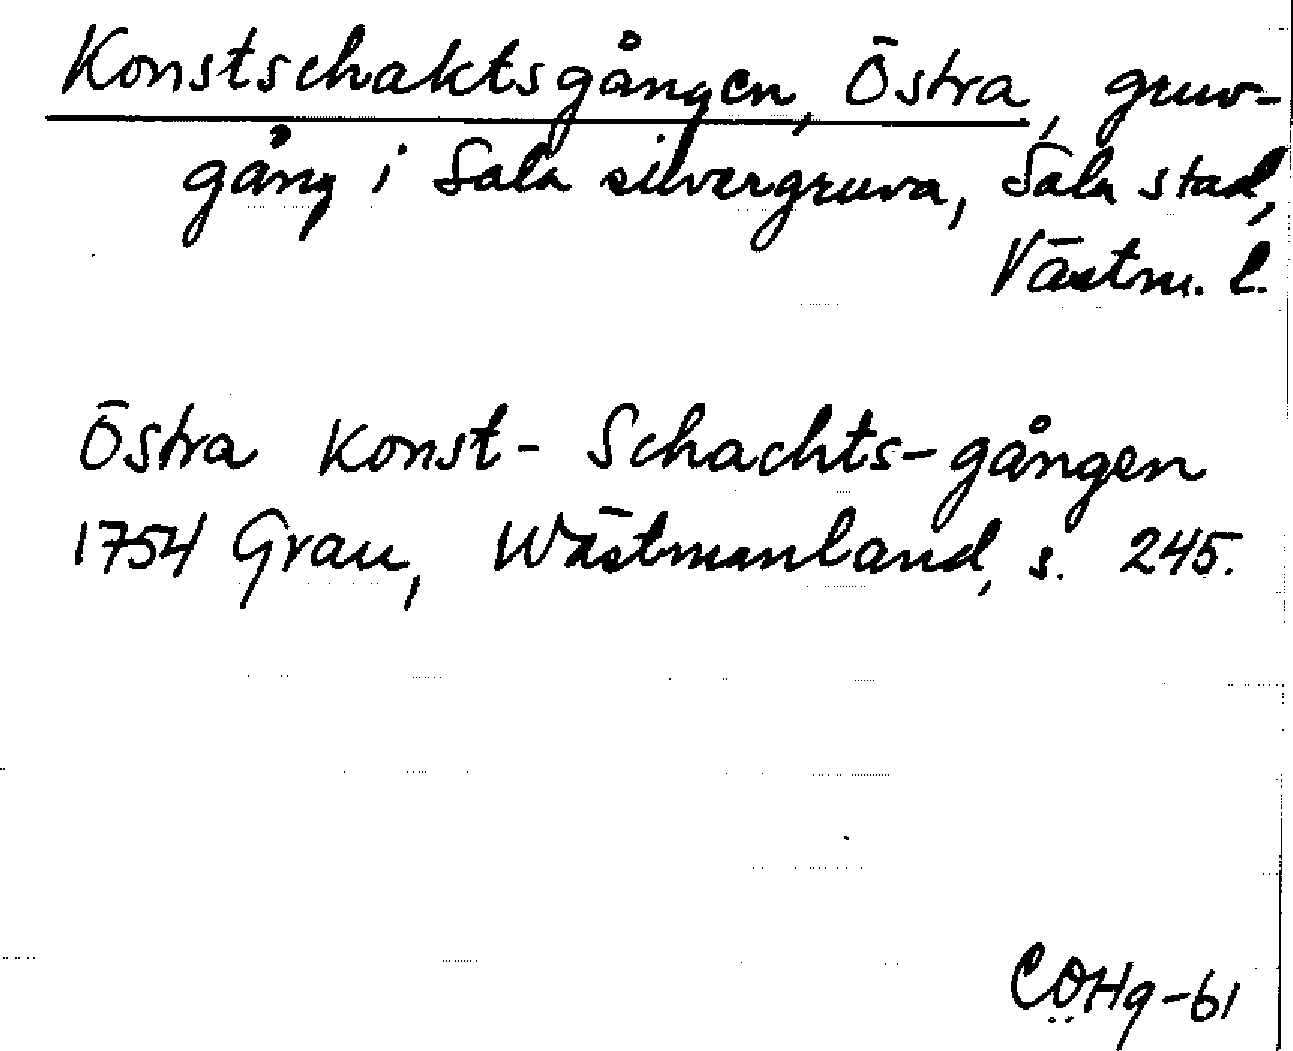 Konstschaktsgången, Östra, gruv-
gång i Sala silvergruva, Sala stad,
Västm. l.
Östra Konst-Schachts-gången
1754 Grau, Wästmanland, s. 245.
COHg-61